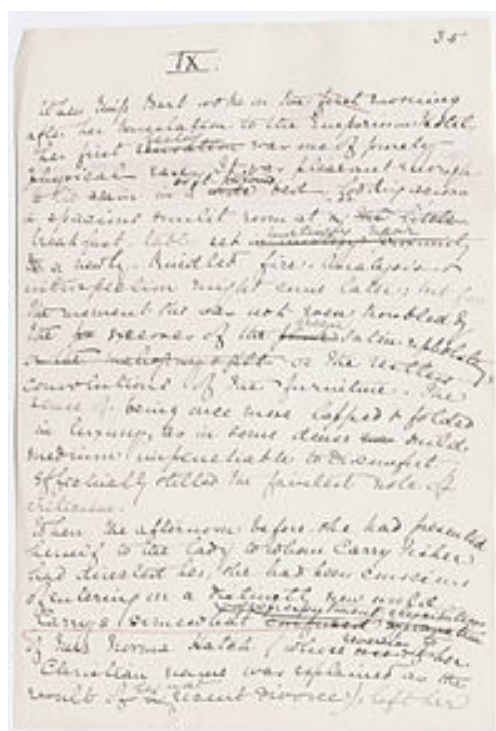 35
IX.
When Miss Bart woke on the first morning
after her translation to the Emporium Hotel,
her first was one of purely
physical It was pleasant enough
to lie again in a soft bed, looking across
a spacious sunlit room at a little
breakfast table set near
to a newly kindled fire. Analysis &
introspection might come later; but for
the moment she was not even troubled by
the excesses of the satin upholstery
or the restless
convolutions of the furniture. The
sense of being once more lapped & folded
in luxury, as in some dense mild
medium impenetrable to discomfort,
effectually stilled the faintest note of
criticism.
When, the afternoon before, she had presented
herself to the lady to whom Carry Fisher
had directed her, she had been conscious
of entering on a distinctly new world.
Carry's somewhat
of Mrs. Norma Hatch (whose reversion to her
Christian name was explained as the
result of her recent divorce), left her